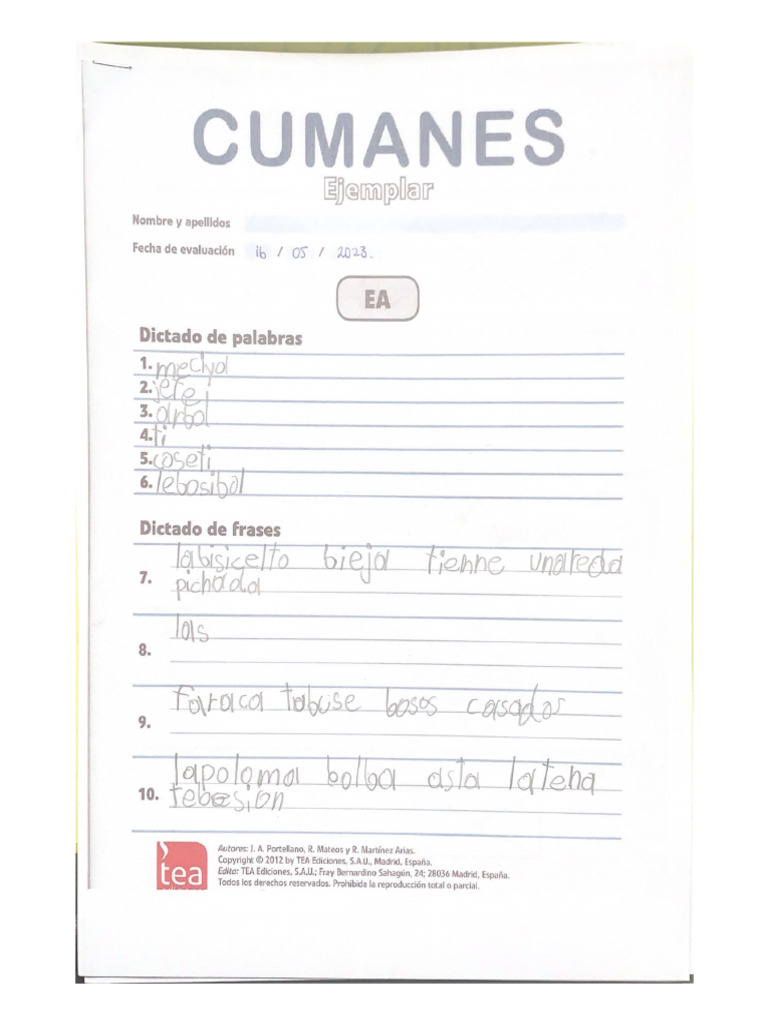 CUMANES
Ejemplar
Nombre y apellidos
Fecha de evaluación 16 / 05 / 2023.
EA
Dictado de palabras
1. mechya
2. jefe
3. árbol
4. ti
5. coseti
6. lebosibal
Dictado de frases
labisicelto bieja tienne unareda
7. pichada
las
8.
faraca tabuse bosos casados
9.
lapoloma bolba asta latena
10. tebesion
Autores: J. A. Portellano, R. Mateos y R. Martínez Arias.
Copyright © 2012 by TEA Ediciones, S.A.U., Madrid, España.
Edita: TEA Ediciones, S.A.U.; Fray Bernardino Sahagún, 24; 28036 Madrid, España.
Todos los derechos reservados. Prohibida la reproducción total o parcial.
tea